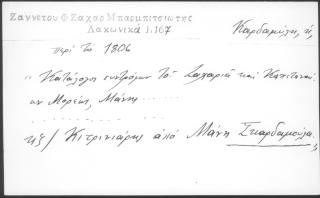 Ζαννετου Φ Ζαχαρ Μπαρμπιτσιωτης
Λακωνικά 1.167
Καρδαμύλη, ἡ,
περί το 1806
"Κατάλογοι συντρόφων του Ζαχαριά και Καπιταναί-
ων Μορέως, Μάνης . . . . . .
κς/ Κιτρινιάρης ἀπό Μάνη Σκαρδαμούλα,